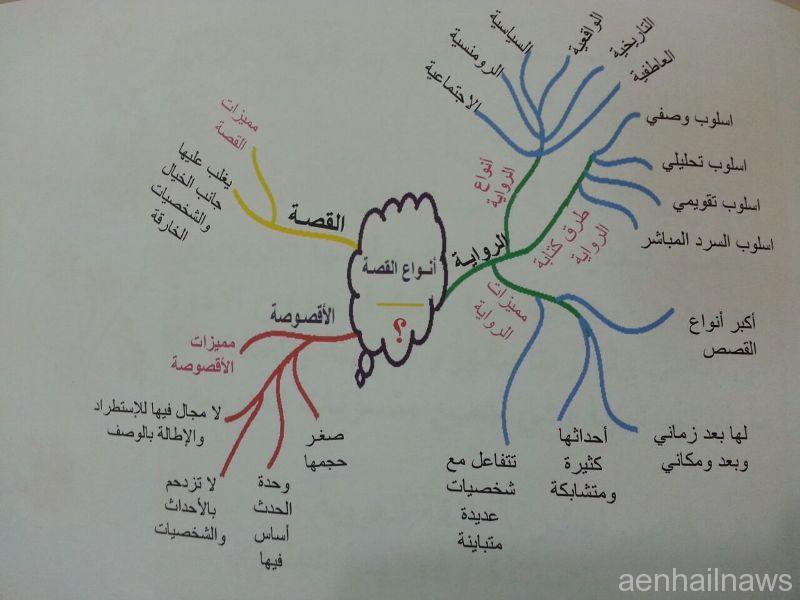 أنواع القصة
؟
الرواية
أنواع
الرواية
الاجتماعية
الرومنسية
السياسية
الواقعية
التاريخية
العاطفية
طرق كتابة
الرواية
اسلوب وصفي
اسلوب تحليلي
اسلوب تقويمي
اسلوب السرد المباشر
مميزات
الرواية
أكبر أنواع
القصص
لها بعد زماني
وبعد ومكاني
أحداثها
كثيرة
ومتشابكة
تتفاعل مع
شخصيات
عديدة
متباينة
القصة
مميزات
القصة
يغلب عليها
جانب الخيال
والشخصيات
الخارقة
الأقصوصة
مميزات
الأقصوصة
صغر
حجمها
وحدة
الحدث
أساس
فيها
لا تزدحم
بالأحداث
والشخصيات
لا مجال فيها للإستطراد
والإطالة بالوصف
aenhailnaws